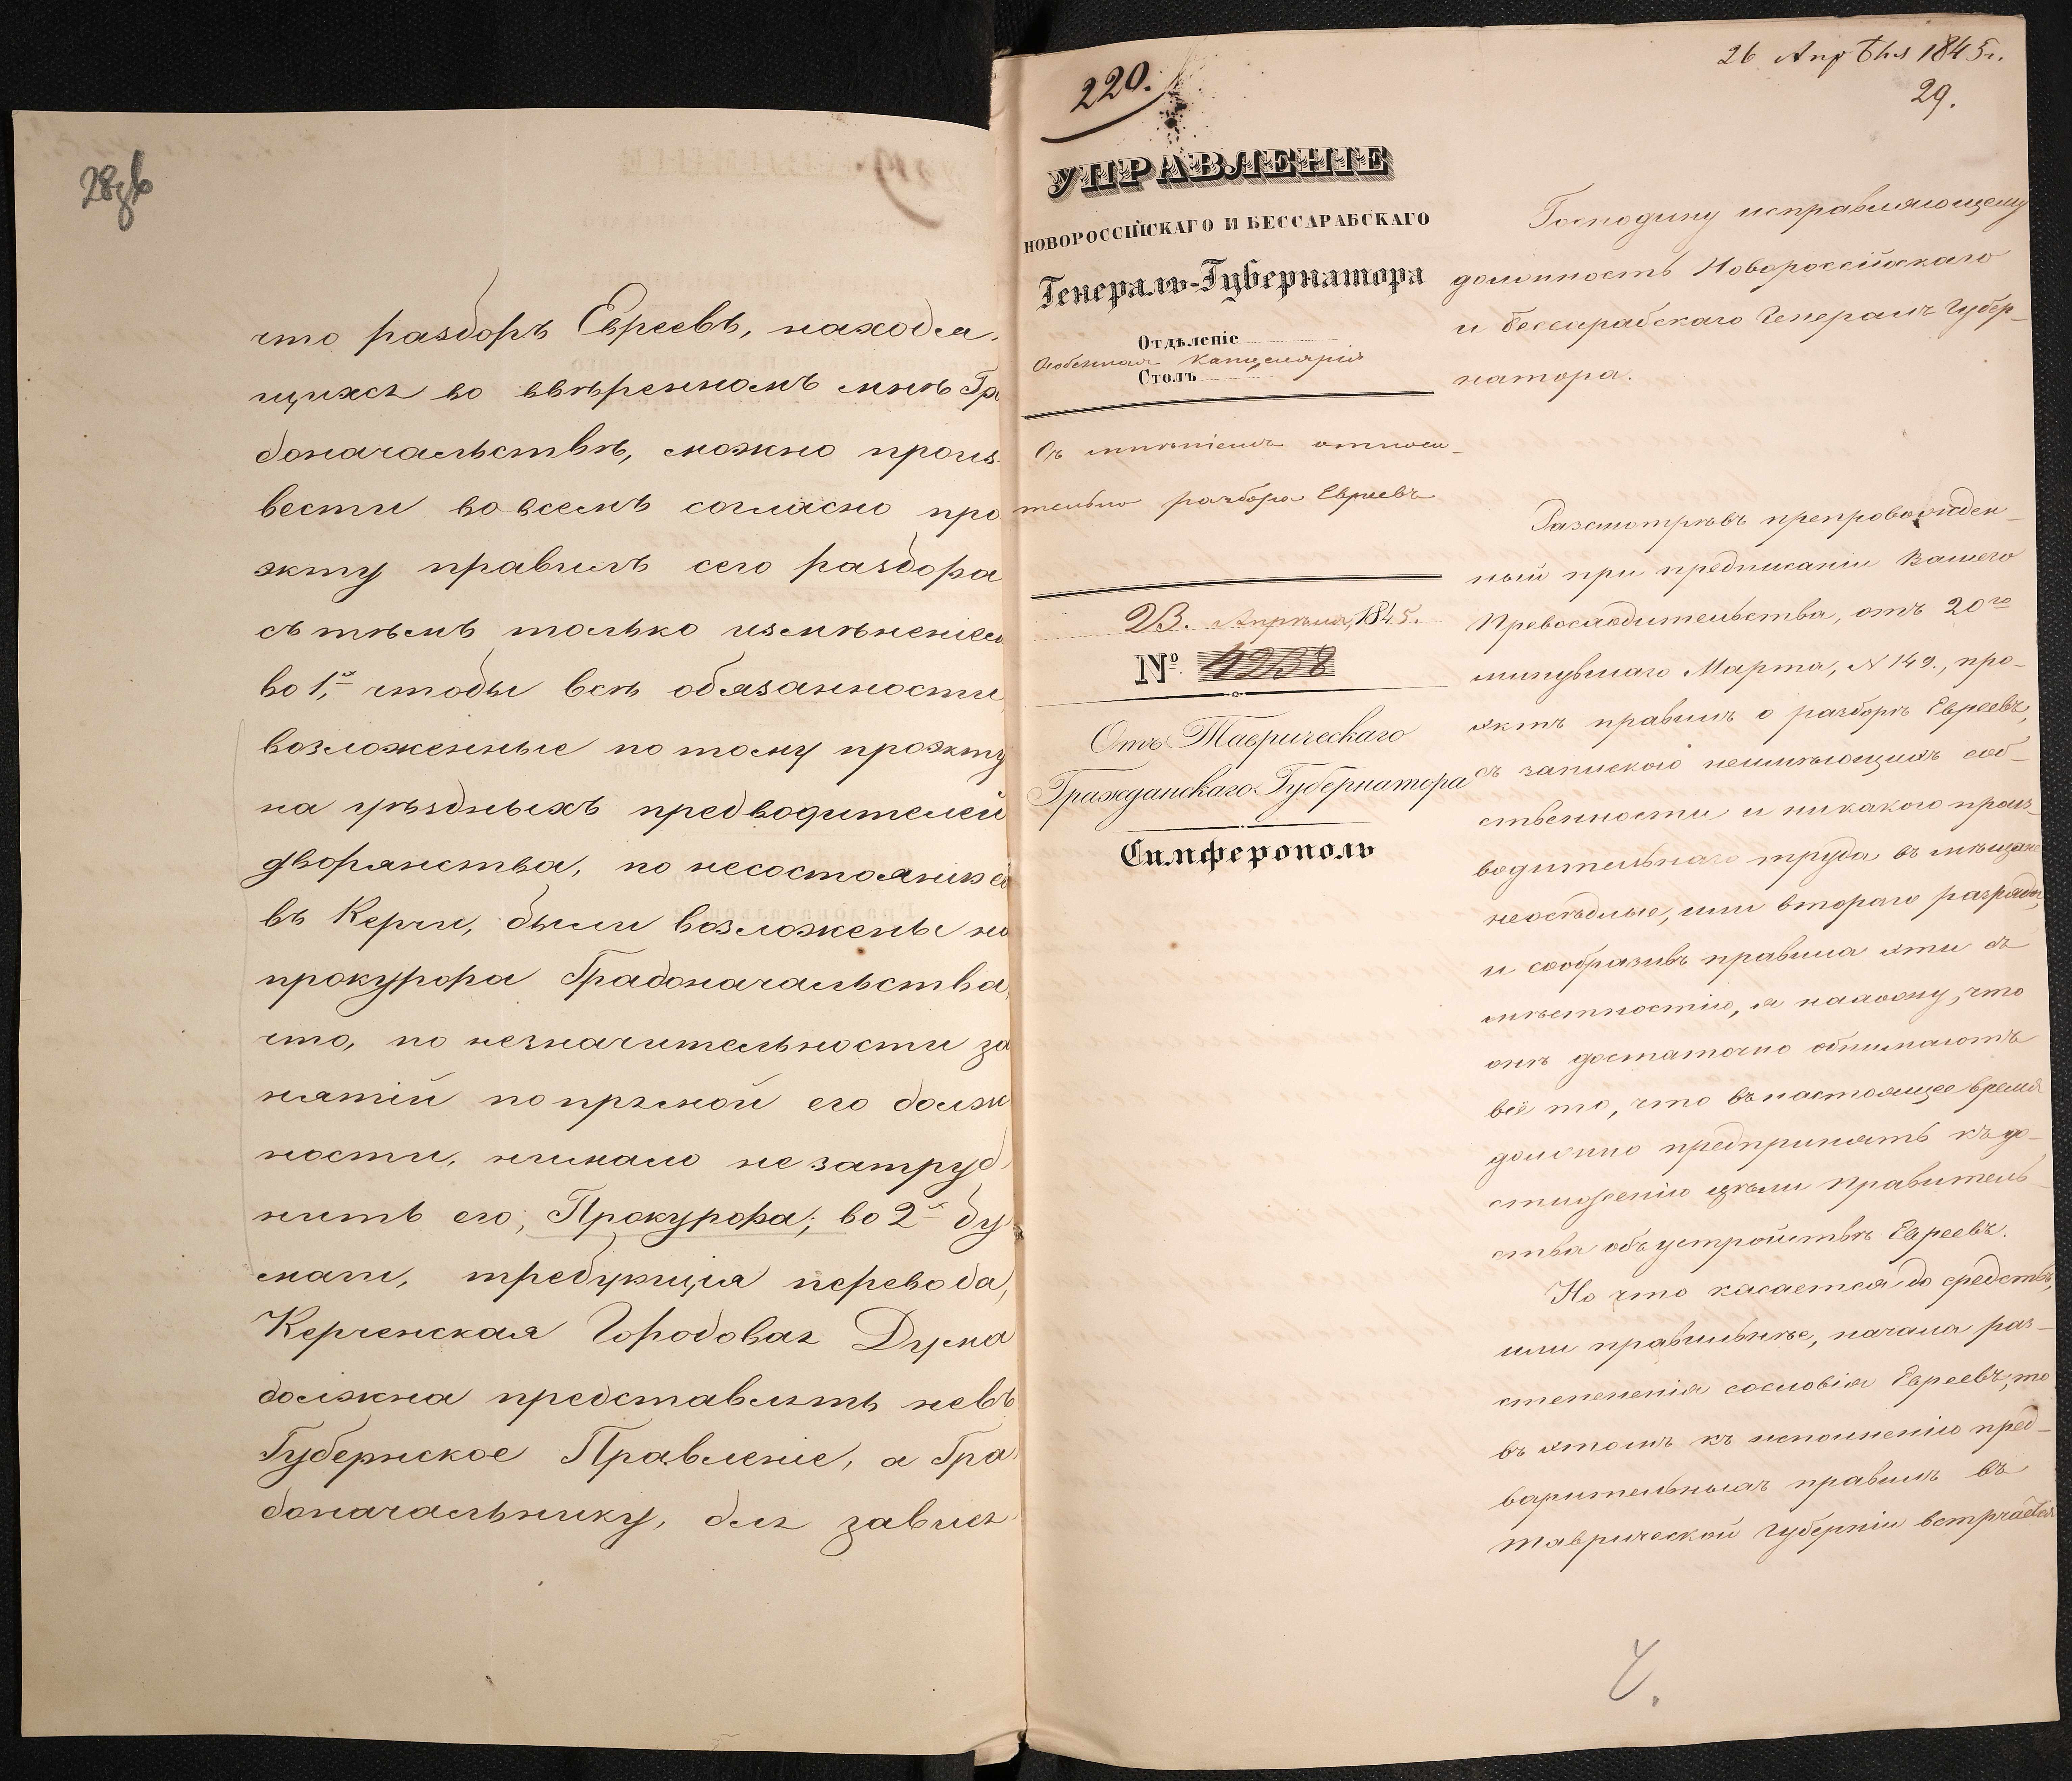 28об
что разборъ Евреевъ, находя-
щихся во ввѣренномъ мнѣ Гра
доначальствѣ, можно произ
вести во всемъ согласно про
экту правилъ сего разбора
съ тѣмъ только измѣненіем
во 1х, чтобы всѣ обязанности,
возложенные по тому проэкту
на уѣздныхъ предводителей
дворянства, по несостоянію
въ Керчи, были возложены на
прокурора Градоначальства,
что, по незначительности за
нятій по прямой его долж
ности, нимало не затруд
нитъ его, Прокурора; во 2х бу
маги, требующія перевода,
Керченская Городовая Дума
должна представлять не въ
Губернское Правленіе, а Гра
доначальнику, для завися
220.
26 Апрѣля 1845 г.
29.
УПРАВЛЕНІЕ
НОВОРОССІЙСКАГО И БЕССАРАБСКАГО
Генералъ-Губернатора
Отдѣленіе
Особенная Канцелярія
Столъ
Съ мнѣніемъ относи-
тельно разбора Евреевъ
23. Апрѣля, 1845.
№ 4238
Отъ Таврическаго
Гражданскаго Губернатора
Симферополь
Господину исправляющему
должность Новороссійскаго
и Бессарабскаго Генералъ Губер-
натора.
Разсмотрѣвъ препровожден-
ный при предписаніи Вашего
Превосходительства, отъ 20го
минувшаго Марта, N 149., про-
эктъ правилъ о разборѣ Евреевъ,
съ запискою неимѣющихъ соб-
ственности и никакого произ-
водительнаго труда въ мѣщане
неосѣдлые, или втораго разряда,
и сообразивъ правила эти съ
мѣстностію, я нахожу, что
онѣ достаточно обнимаютъ
всё то, что въ настоящее время
должно предпринять къ до-
стиженію цѣли Правитель-
ства объ устройствѣ Евреевъ.
Но что касается до средствъ,
или правильнѣе, начала раз-
степененія сословія Евреевъ, то
въ этомъ къ исполненію пред-
варительныхъ правилъ въ
Таврической губерніи встрѣчается